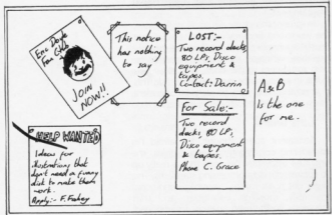 Eno Doyle
Fan Club
JOIN
NOW!!
This notice
has nothing
to say
LOST:-
Two record decks,
80 LPs, Disco
equipment &
tapes.
Contact: Darrin
For Sale:-
Two record
decks, 80 LPs,
Disco equipment
& tapes.
Phone C. Grace
A&B
Is the one
for me.
HELP WANTED
Ideas for
illustrations that
don't need a funny
dist to make them
work.
Apply:- F. Fahey